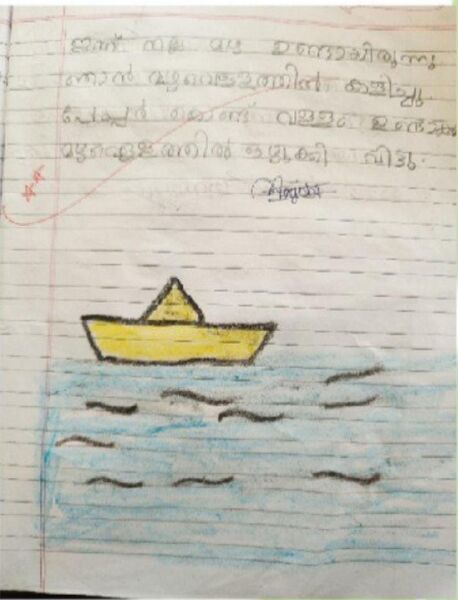 ഇന്ന് നല്ല മഴ ഉണ്ടായിരുന്നു
ഞാൻ മഴവെള്ളത്തിൽ കളിച്ചു
പേപ്പർ കൊണ്ട് വള്ളം ഉണ്ടാക്കി
മഴവെള്ളത്തിൽ ഒഴുക്കി വിട്ടു.